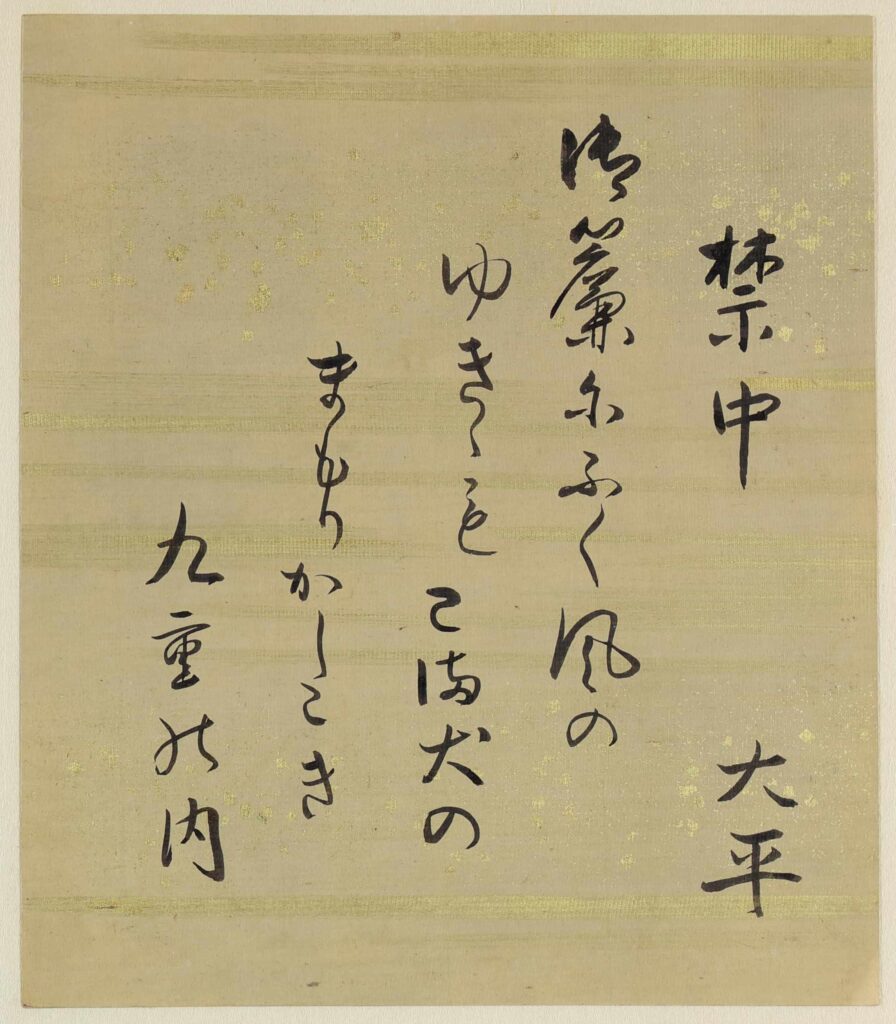 禁中 大平
御簾にふく風の
ゆきゝもこま犬の
まもりかしこき
九重の内